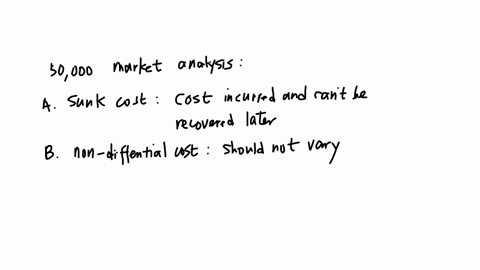 50,000 market analysis:
A. Sunk cost: Cost incurred and can't be
recovered later
B. non-diffential cost: should not vary